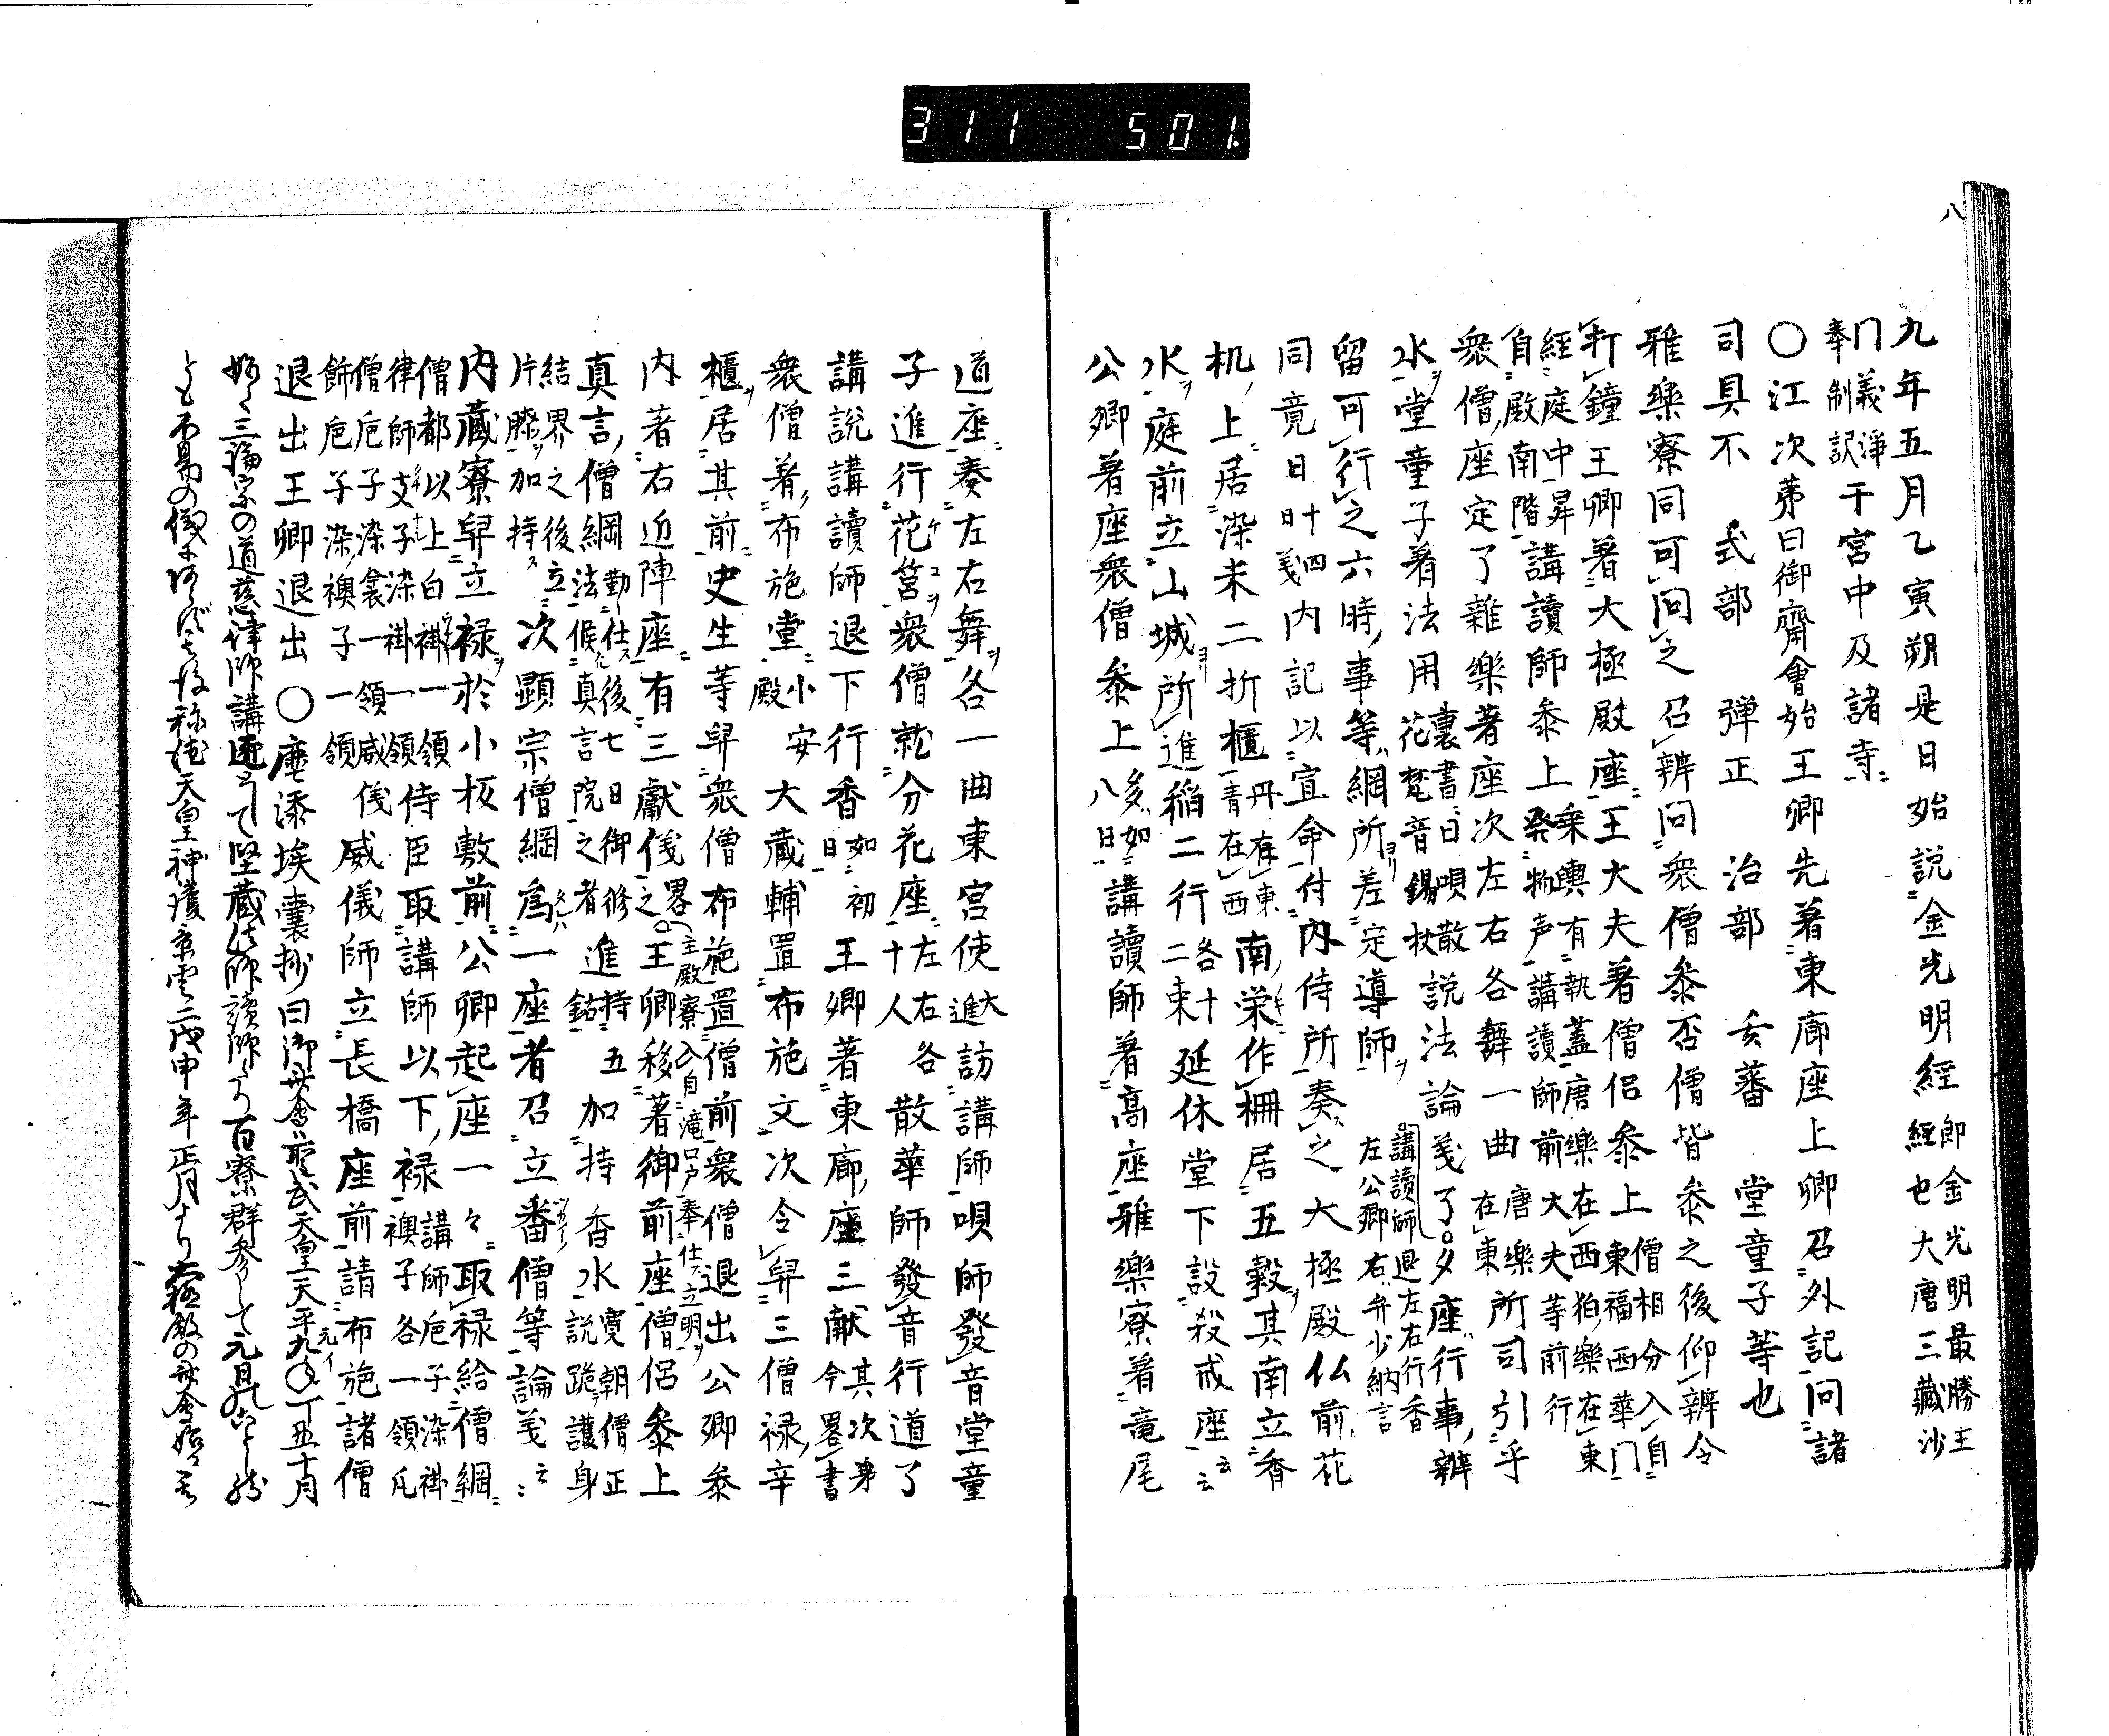 311 501.
八
九年五月乙寅朔是日始説金光明經 即金光明最勝王經也大唐三藏沙
门義淨奉制訳 于宮中及諸寺
〇江次第曰御齋會始王卿先著東廊座上卿召外記問諸
司具不 式部 弾正 治部 玄蕃 堂童子等也
雅樂寮同可問之召辨問衆僧参否僧皆参之後仰辨令
打鐘王卿著大極殿座王大夫著僧侶参上 僧相分入自東福西華门
經庭中昇自殿南階 講讀師参上 乗輿有執蓋唐樂在西狛樂在東 發物声講讀師前大夫等前行
衆僧座定了雑樂著座次左右各舞一曲 唐樂在東 所司引乎
水堂童子著法用 裏書曰唄散花梵音錫杖 説法論義了夕座行事辨 講讀師退左右行香左公卿右弁少納言
留可行之六時事等綱所差定導師
同竟日 十四日 内記以宣命付内侍所奏之大極殿仏前花
机上居染未二折櫃 丹有東青在西 南栄作柵居五穀其南立香
水庭前立山城所進稲二行 各十二束 延休堂下設殺戒座云云
公卿著座衆僧参上 如八日 講讀師著髙座雅樂寮著竜尾
道座奏左右舞各一曲東宮使 大進 訪講師唄師發音堂童
子進行花筥衆僧就分花座 左右各十人 散華師發音行道了
講説講讀師退下行香 如初日 王卿著東廊座三献 其次第今畧書
衆僧著布施堂 小安殿 大蔵輔置布施文次令舁三僧禄辛
櫃居其前史生等舁衆僧布施置僧前衆僧退出公卿参
内著右近陣座有三獻儀 畧之 王卿移著御前座僧侶参上 主殿寮入自滝口戸奉仕立明
真言僧綱 勤仕後七日御修法候真言院之者 進持鈷五加持香水 寛朝僧正説跪護身
結界之後立片膝加持 次顕宗僧綱爲一座者召立番僧等論義云云
内藏寮舁立禄於小板敷前公卿起座一々取禄給僧綱
僧都以上白褂一領律師支子染褂一領 侍臣取講師以下禄 講師巵子染褂襖子各一領凡
僧巵子染衾一領威儀飾巵子染襖子一領 威儀師立長橋座前請布施諸僧
退出王卿退出〇塵添埃嚢抄曰御斎會ハ聖武天皇天平九年丁丑十月